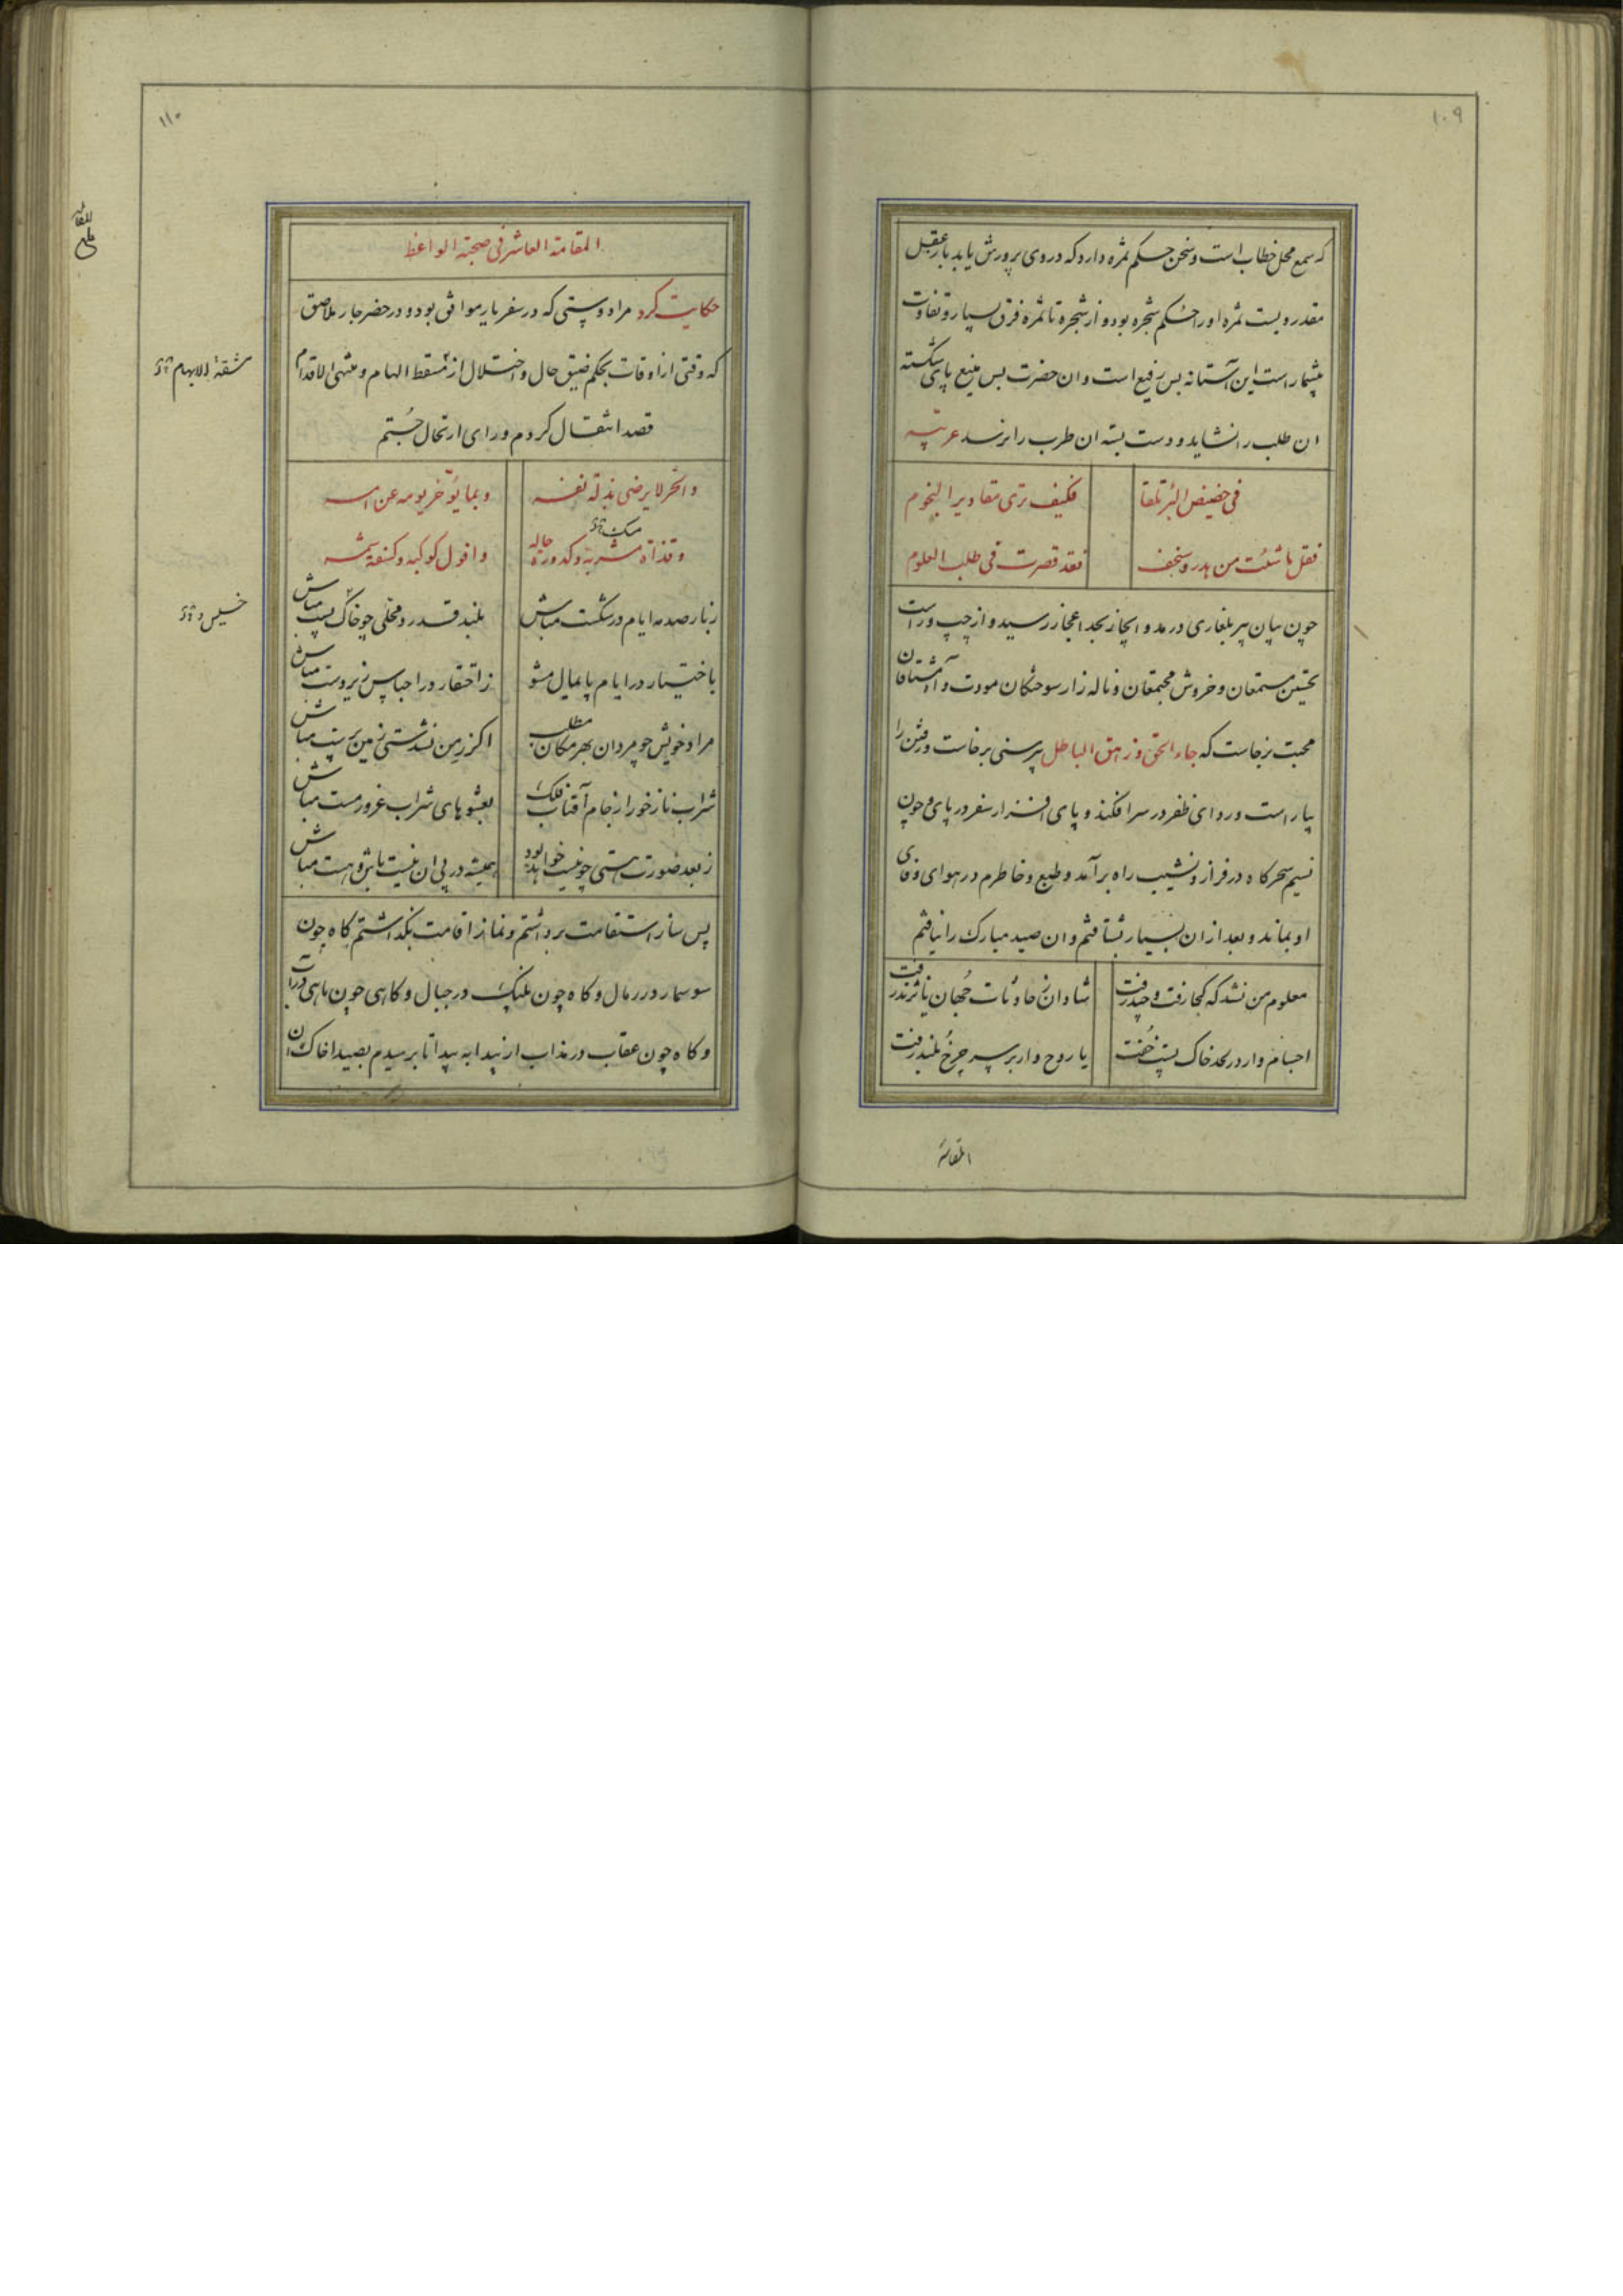 ۱۰۹
که سمع محل خطاب است و سخن حکم ثمره دارد که در وی پرورش یابد باز عقل
مقدر و بست ثمره او را حکم شجره بود و از شجره تا ثمره فرق بسیار و تفاوت
بیشمار است این آستانه بس رفیع است و ان حضرت بس منیع پای شکسته
ان طلب را نشاید و دست بسته ان طرب را نرسد عربیه
فی حضیض البئر تلقا فکیف تری مقادیر النجوم
فقل ما شئت من بدر و سخف فقد قصرت فی طلب العلوم
چون بیان پیر بلغاری در مد و ایجاز بحد اعجاز رسید و از چپ و راست
تحسین مستمعان و خروش مجتمعان و ناله زار سوختگان مودت و آه مشتاقان
محبت برخاست که جاء الحق و زهق الباطل پیر سنی برخاست و رفتن را
بیاراست و ردای ظفر در سر افکند و پای افزار سفر در پای و چون
نسیم سحرگاه در فراز و نشیب راه برآمد و طبع و خاطرم در هوای وفای
او بماند و بعد از ان بسیار بشتافتم و ان صید مبارک را نیافتم
معلوم من نشد که کجا رفت و چند رفت شادان ز حادثات جهان یا نژند رفت
اجسام وار در لحد خاک پست خفت یا روح وار بر سر چرخ بلند رفت
المقامة
۱۱۰
المقامة العاشر فی صحبة الواعظ
حکایت کرد مرا دوستی که در سفر یار موافق بود و در حضر جار ملاصق
که وقتی از اوقات بحکم ضیق حال و اختلال از مسقط الهام و منتهی الاقدام
قصد انتقال کردم و رای ارتحال جستم
والحر لا یرضی بذلة نفسه و بما یؤخر یومه عن امسه
و قذاة مشربه و کدورة حاله و افول کوکبه و کسفة شمسه
زبار صدمه ایام در شکست مباش بلند قدر و محلی چو خاک پست مباش
باختیار در ایام پایمال مشو ز احتقار در اجناس زیر دست مباش
مراد خویش چو مردان بهر مکان مطلب اگر زمن نشدستی زمین پرست مباش
شراب ناز خور از جام آفتاب فلک بعشوهای شراب غرور مست مباش
ز بعد صورت هستی چو نیست خواهد بود همیشه در پی ان نیست باش و هست مباش
پس ساز استقامت برداشتم و نماز اقامت بگذاشتم گاه چون
سوسمار در رمال و گاه چون پلنگ در جبال و گاهی چون ماهی در آب
و گاه چون عقاب از بیدا به بیدا تا برسیدم بصیدا خاک ان